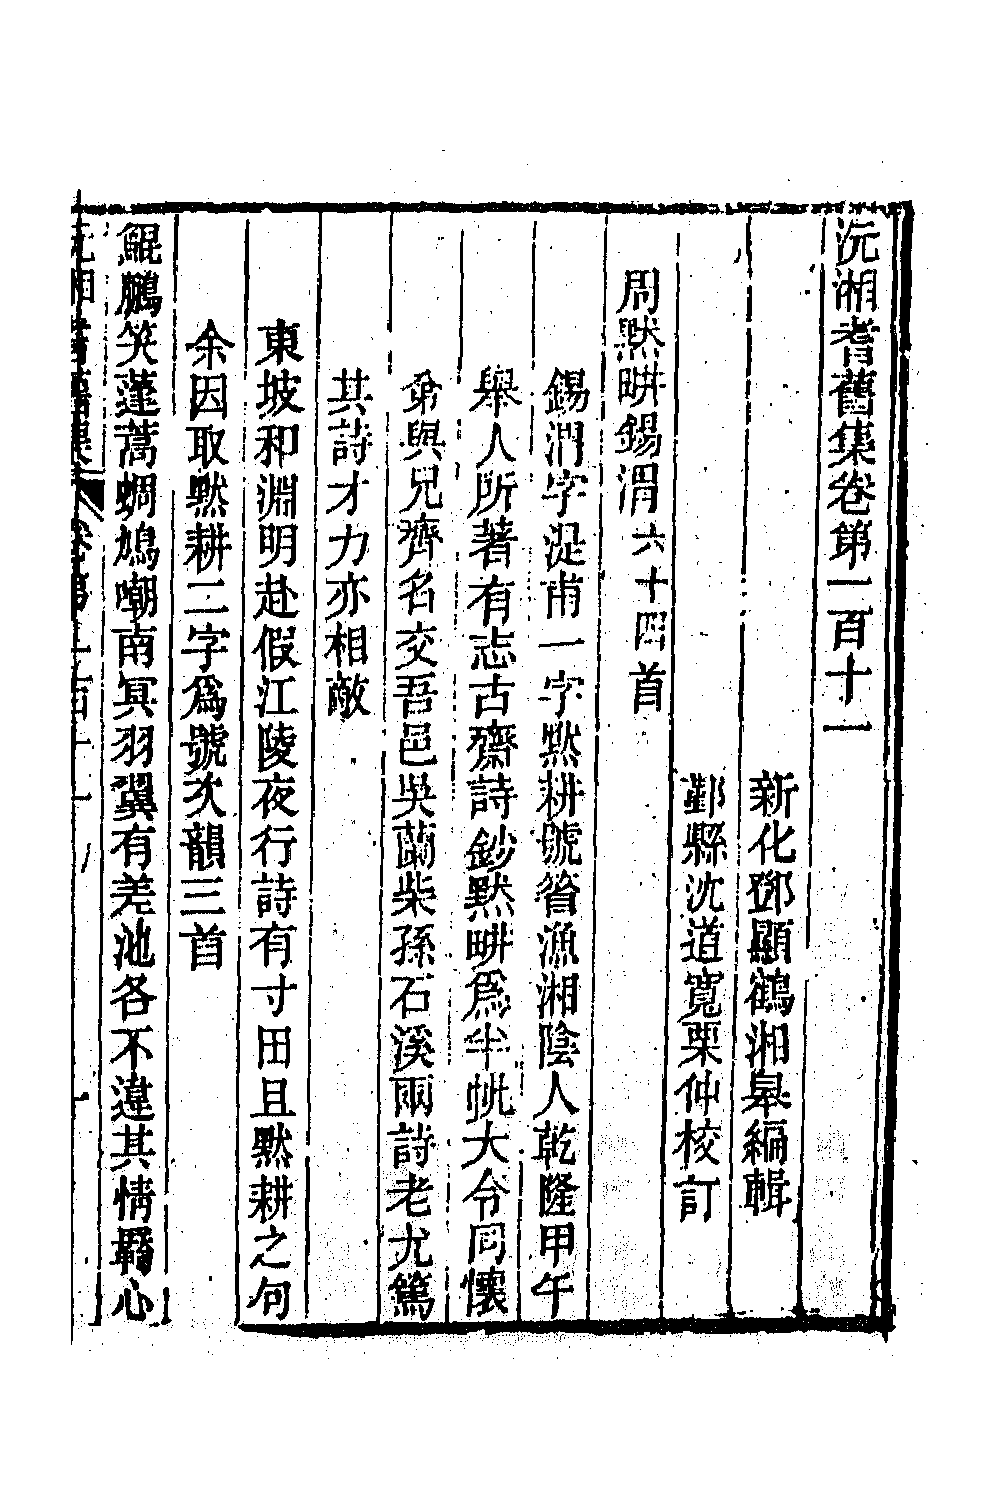 沅湘耆舊集卷第一百十一
新化鄧顯鶴湘皋編輯
鄞縣沈道寬栗仲校訂
周默畊錫渭六十四首
錫渭字浞甫一字默耕號簵漁湘陰人乾隆甲午
舉人所著有志古齋詩鈔默畊爲半帨大令同懷
弟與兄齊名交吾邑吳蘭柴孫石溪兩詩老尤篤
其詩才力亦相敵
東坡和淵明赴假江陵夜行詩有寸田且默耕之句
余因取默耕二字爲號次韻三首
鯤鵬笑蓬蒿蜩鳩嘲南冥羽翼有差池各不違其情羈心